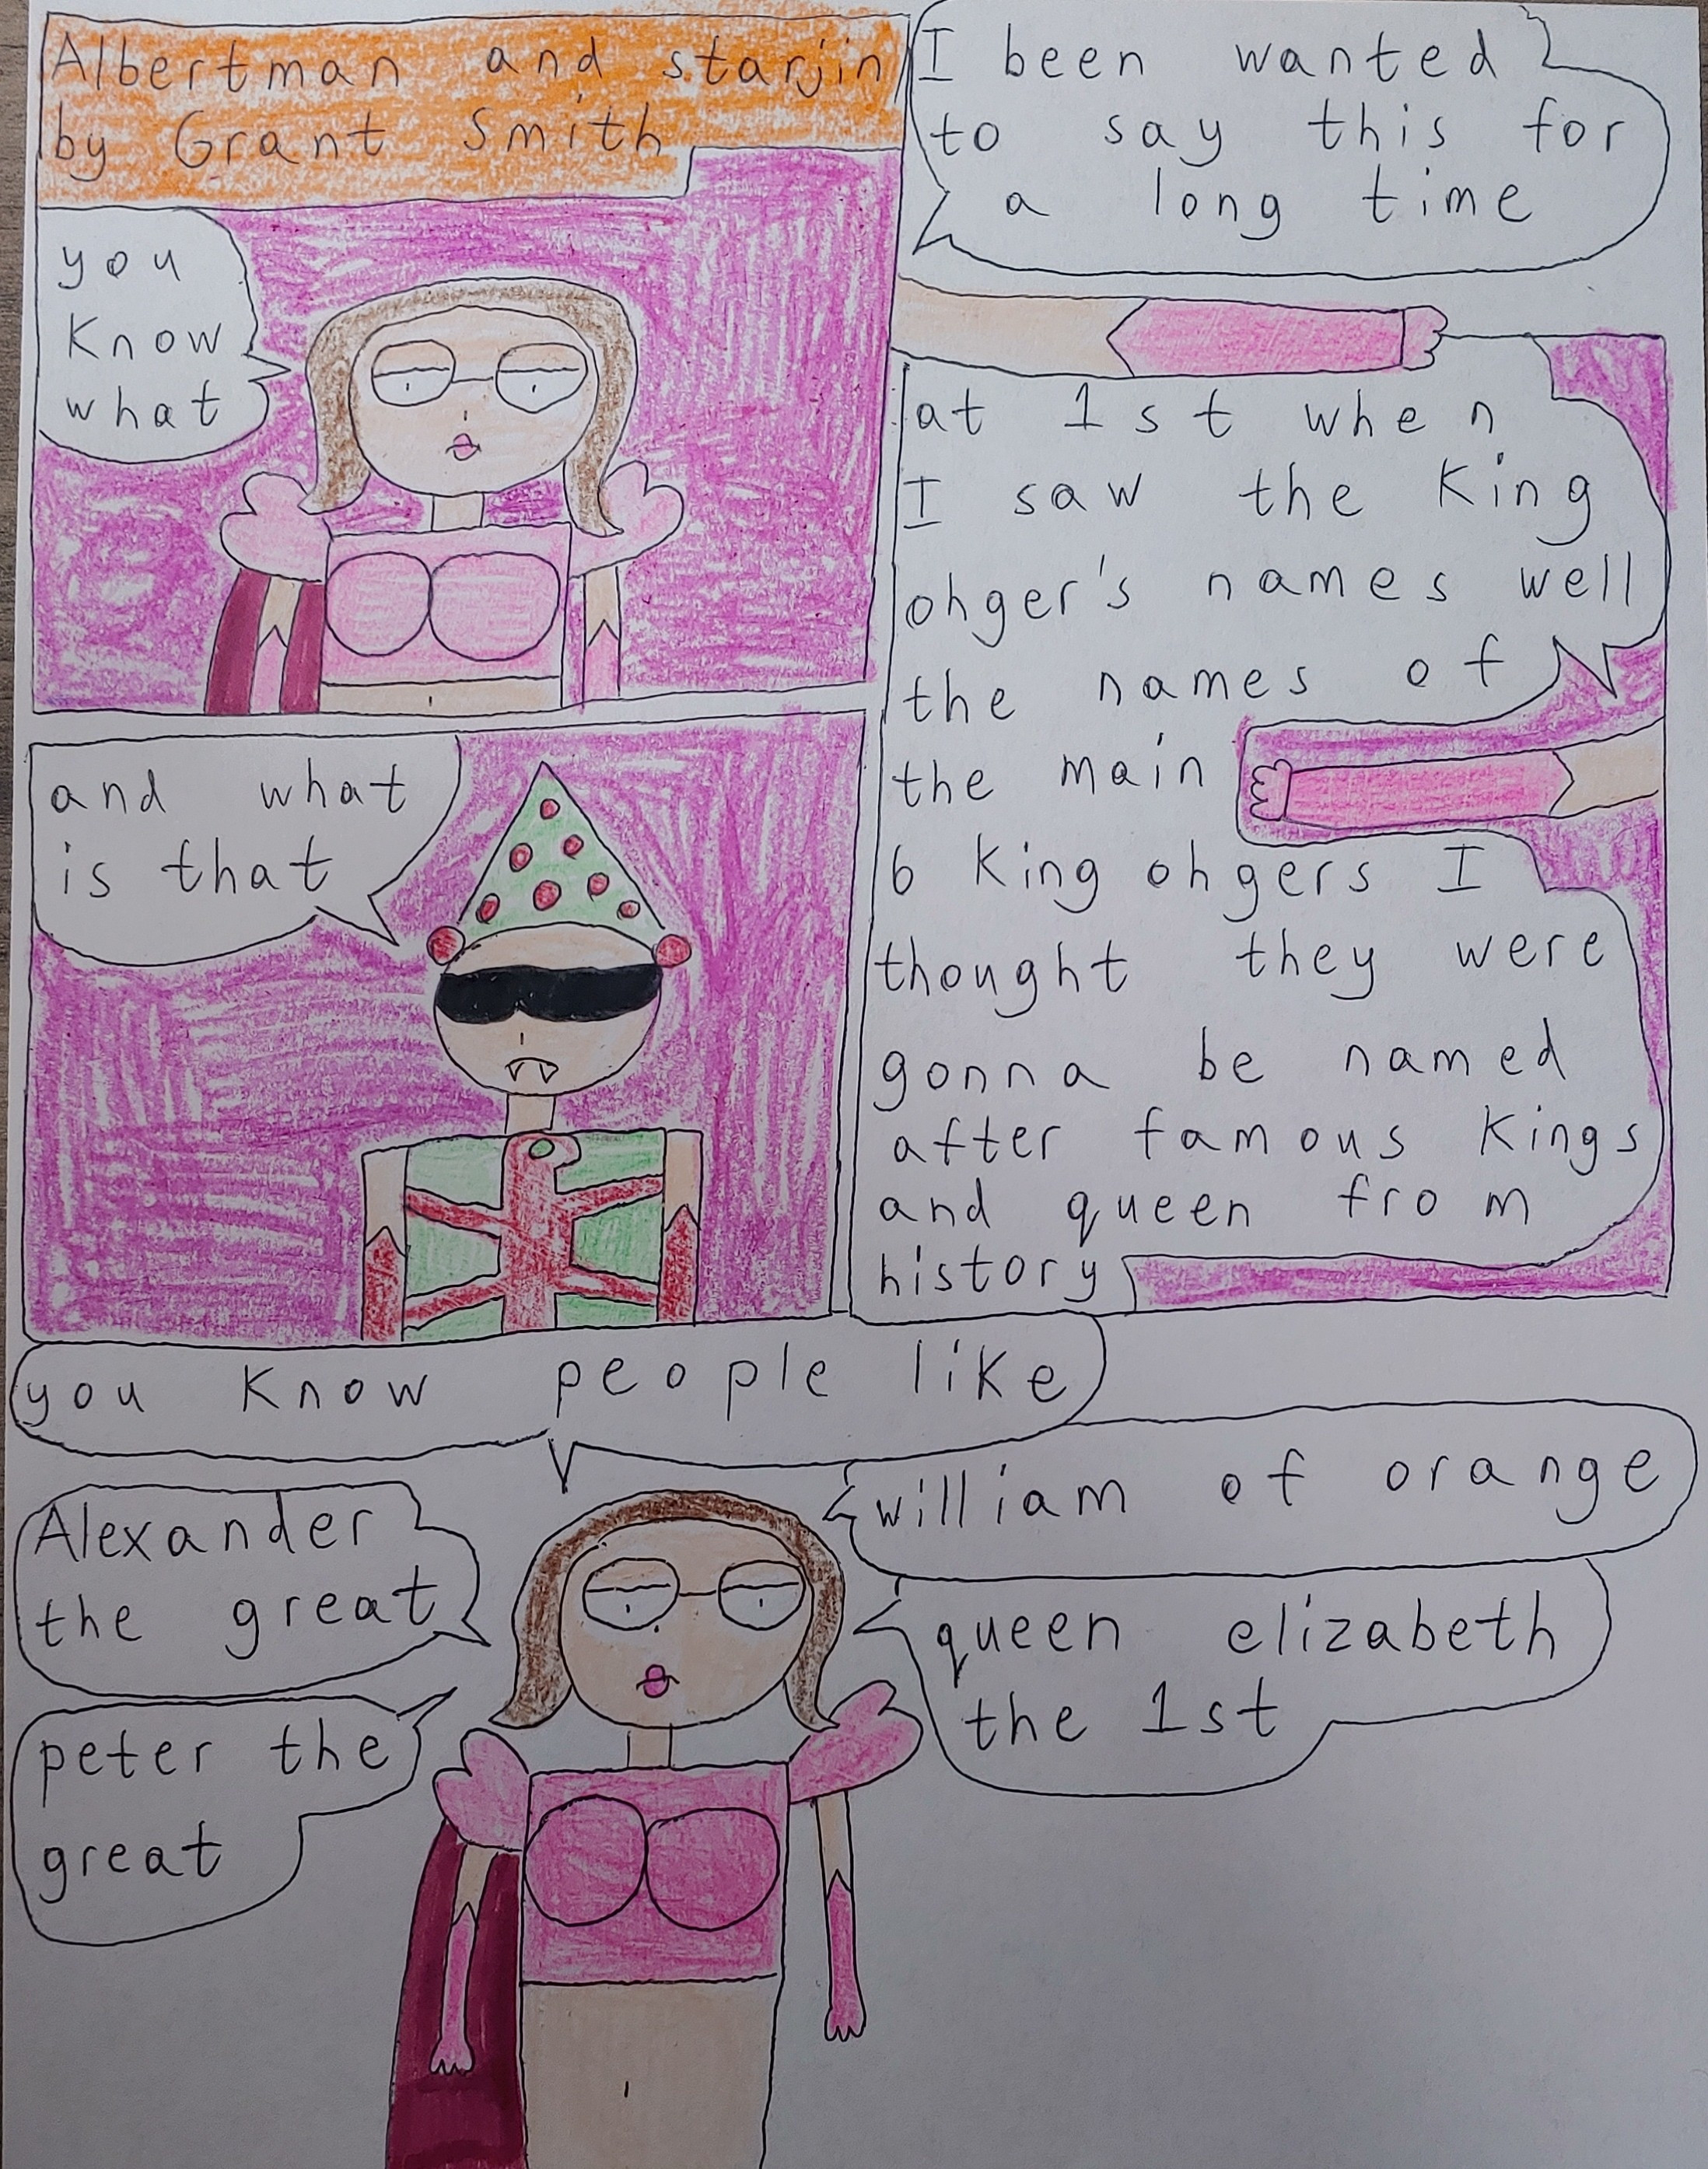 Albertman and starjin
by Grant Smith
you
know
what
and what
is that
I been wanted
to say this for
a long time
at 1st when
I saw the king
ohger's names well
the names of
the main
6 king ohgers I
thought they were
gonna be named
after famous kings
and queen from
history
you know people like
Alexander
the great
peter the
great
william of orange
queen elizabeth
the 1st